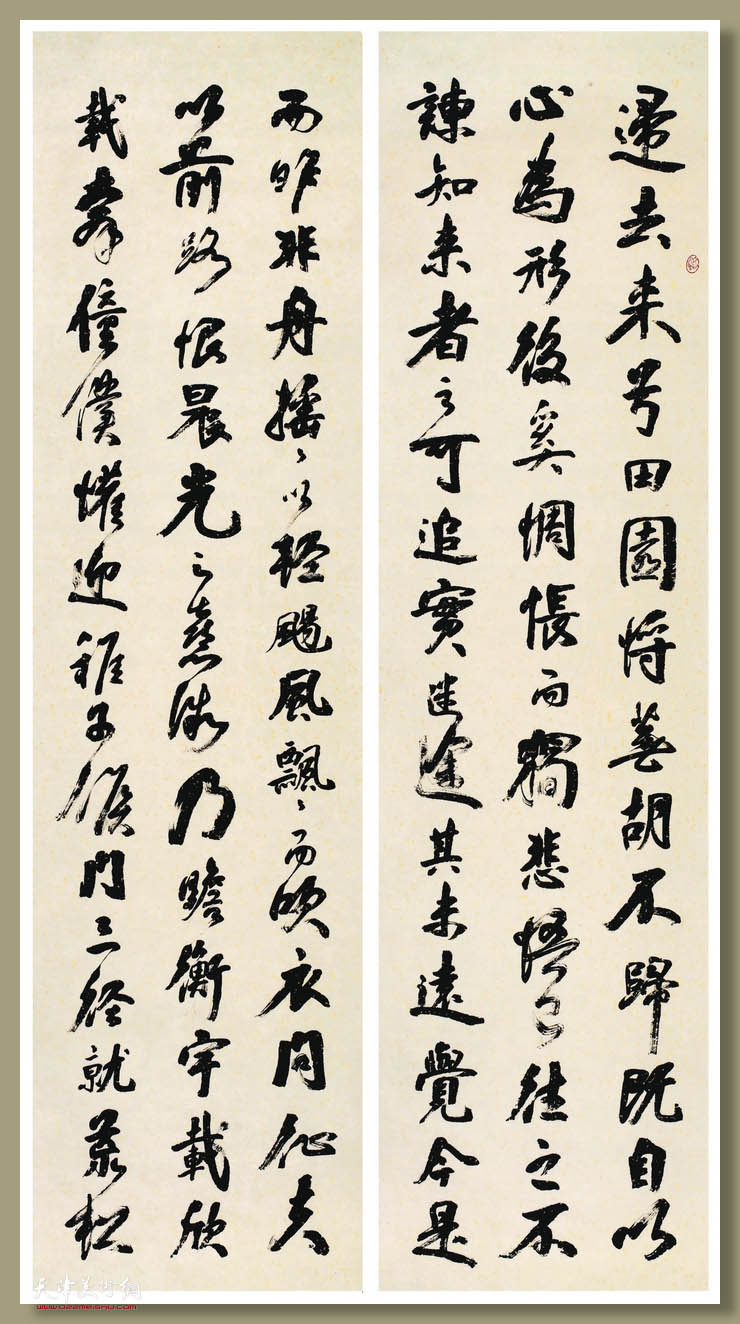 歸去来兮田園將蕪胡不歸既自以
心為形役奚惆悵而獨悲悟已往之不
諫知来者之可追實迷途其未遠覺今是
而昨非舟摇〻以輕颺風飄〻而吹衣問征夫
以前路恨晨光之熹微乃瞻衡宇載欣
載奔僮僕懽迎稚子候門三徑就荒松
天津美术网
www.022meishu.com